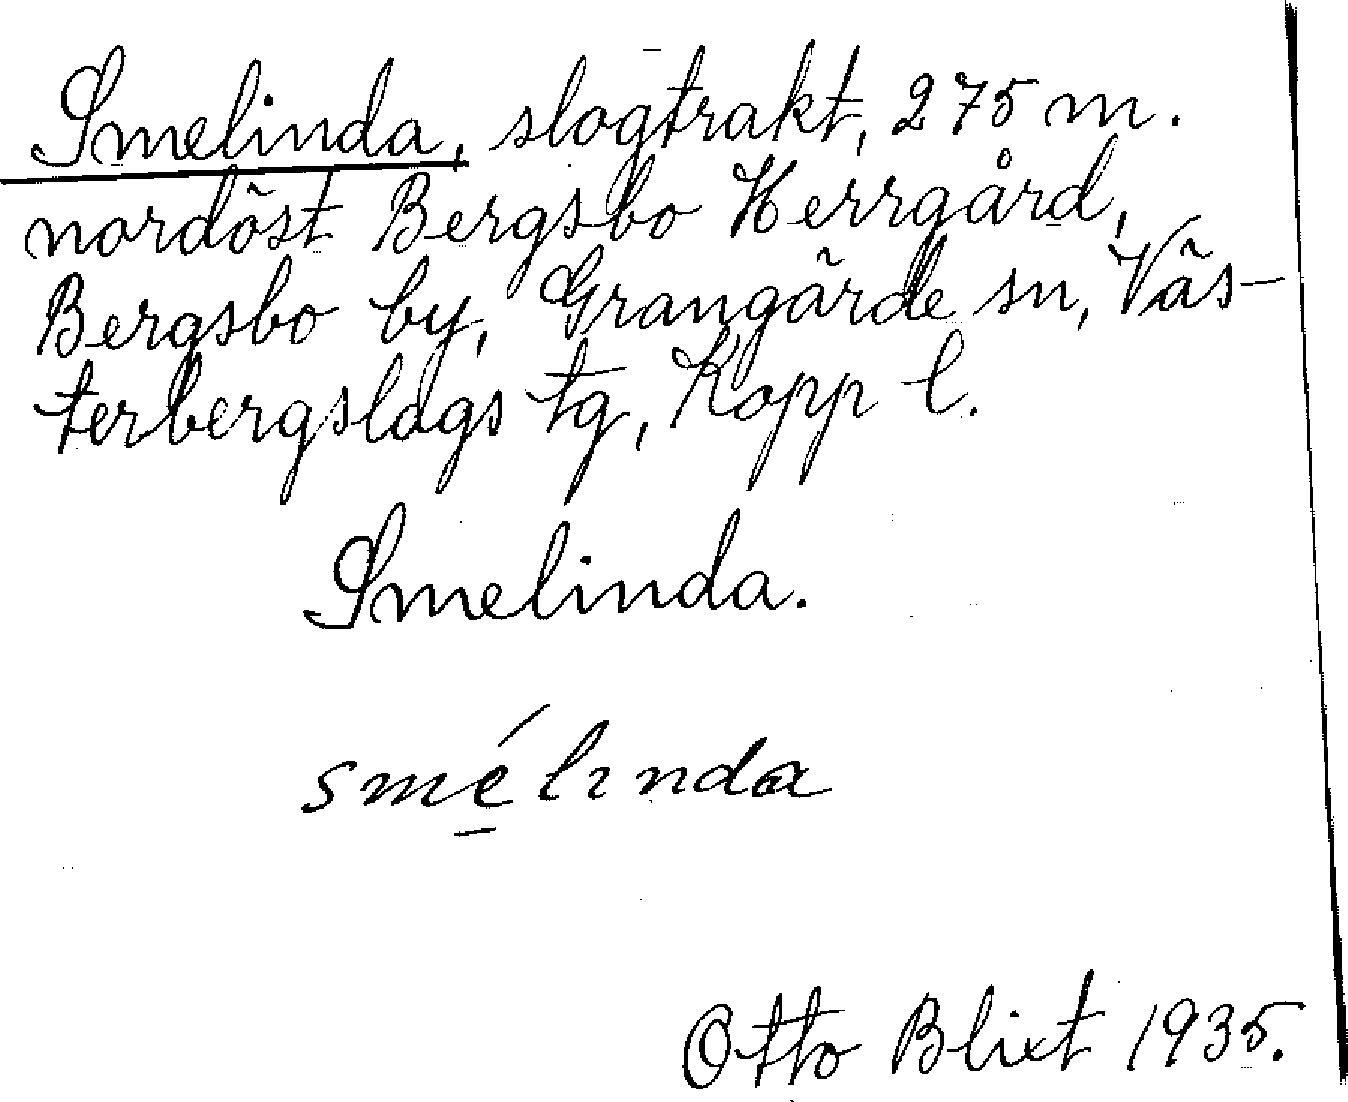 Smelinda, slogtrakt, 275 m.
nordöst Bergsbo Herrgård,
Bergsbo by, Grangärde sn, Väs-
terbergslags tg, Kopp l.
Smelinda.
smé̱lɩnda
Otto Blixt 1935.